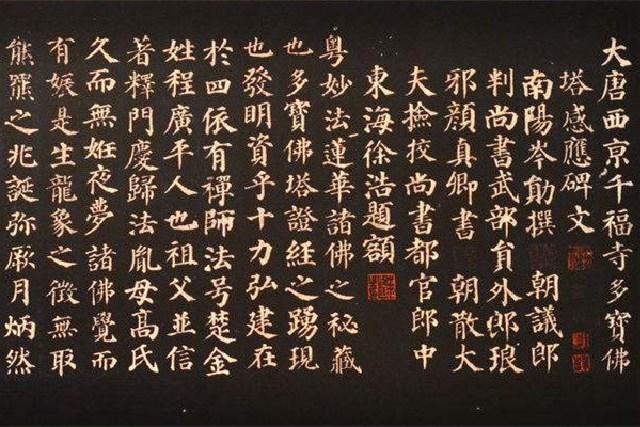 大唐西京千福寺多寶佛
塔感應碑文
南陽岑勛撰 朝議郎
判尚書武部員外郎琅
邪顏真卿書 朝散大
夫撿挍尚書都官郎中
東海徐浩題額
粵妙法蓮華諸佛之秘藏
也多寶佛塔證經之踴現
也發明資乎十力弘建在
於四依有禪師法号楚金
姓程廣平人也祖父並信
著釋門慶歸法胤母高氏
久而無姙夜夢諸佛覺而
有娠是生龍象之徵無取
熊羆之兆誕弥厥月炳然